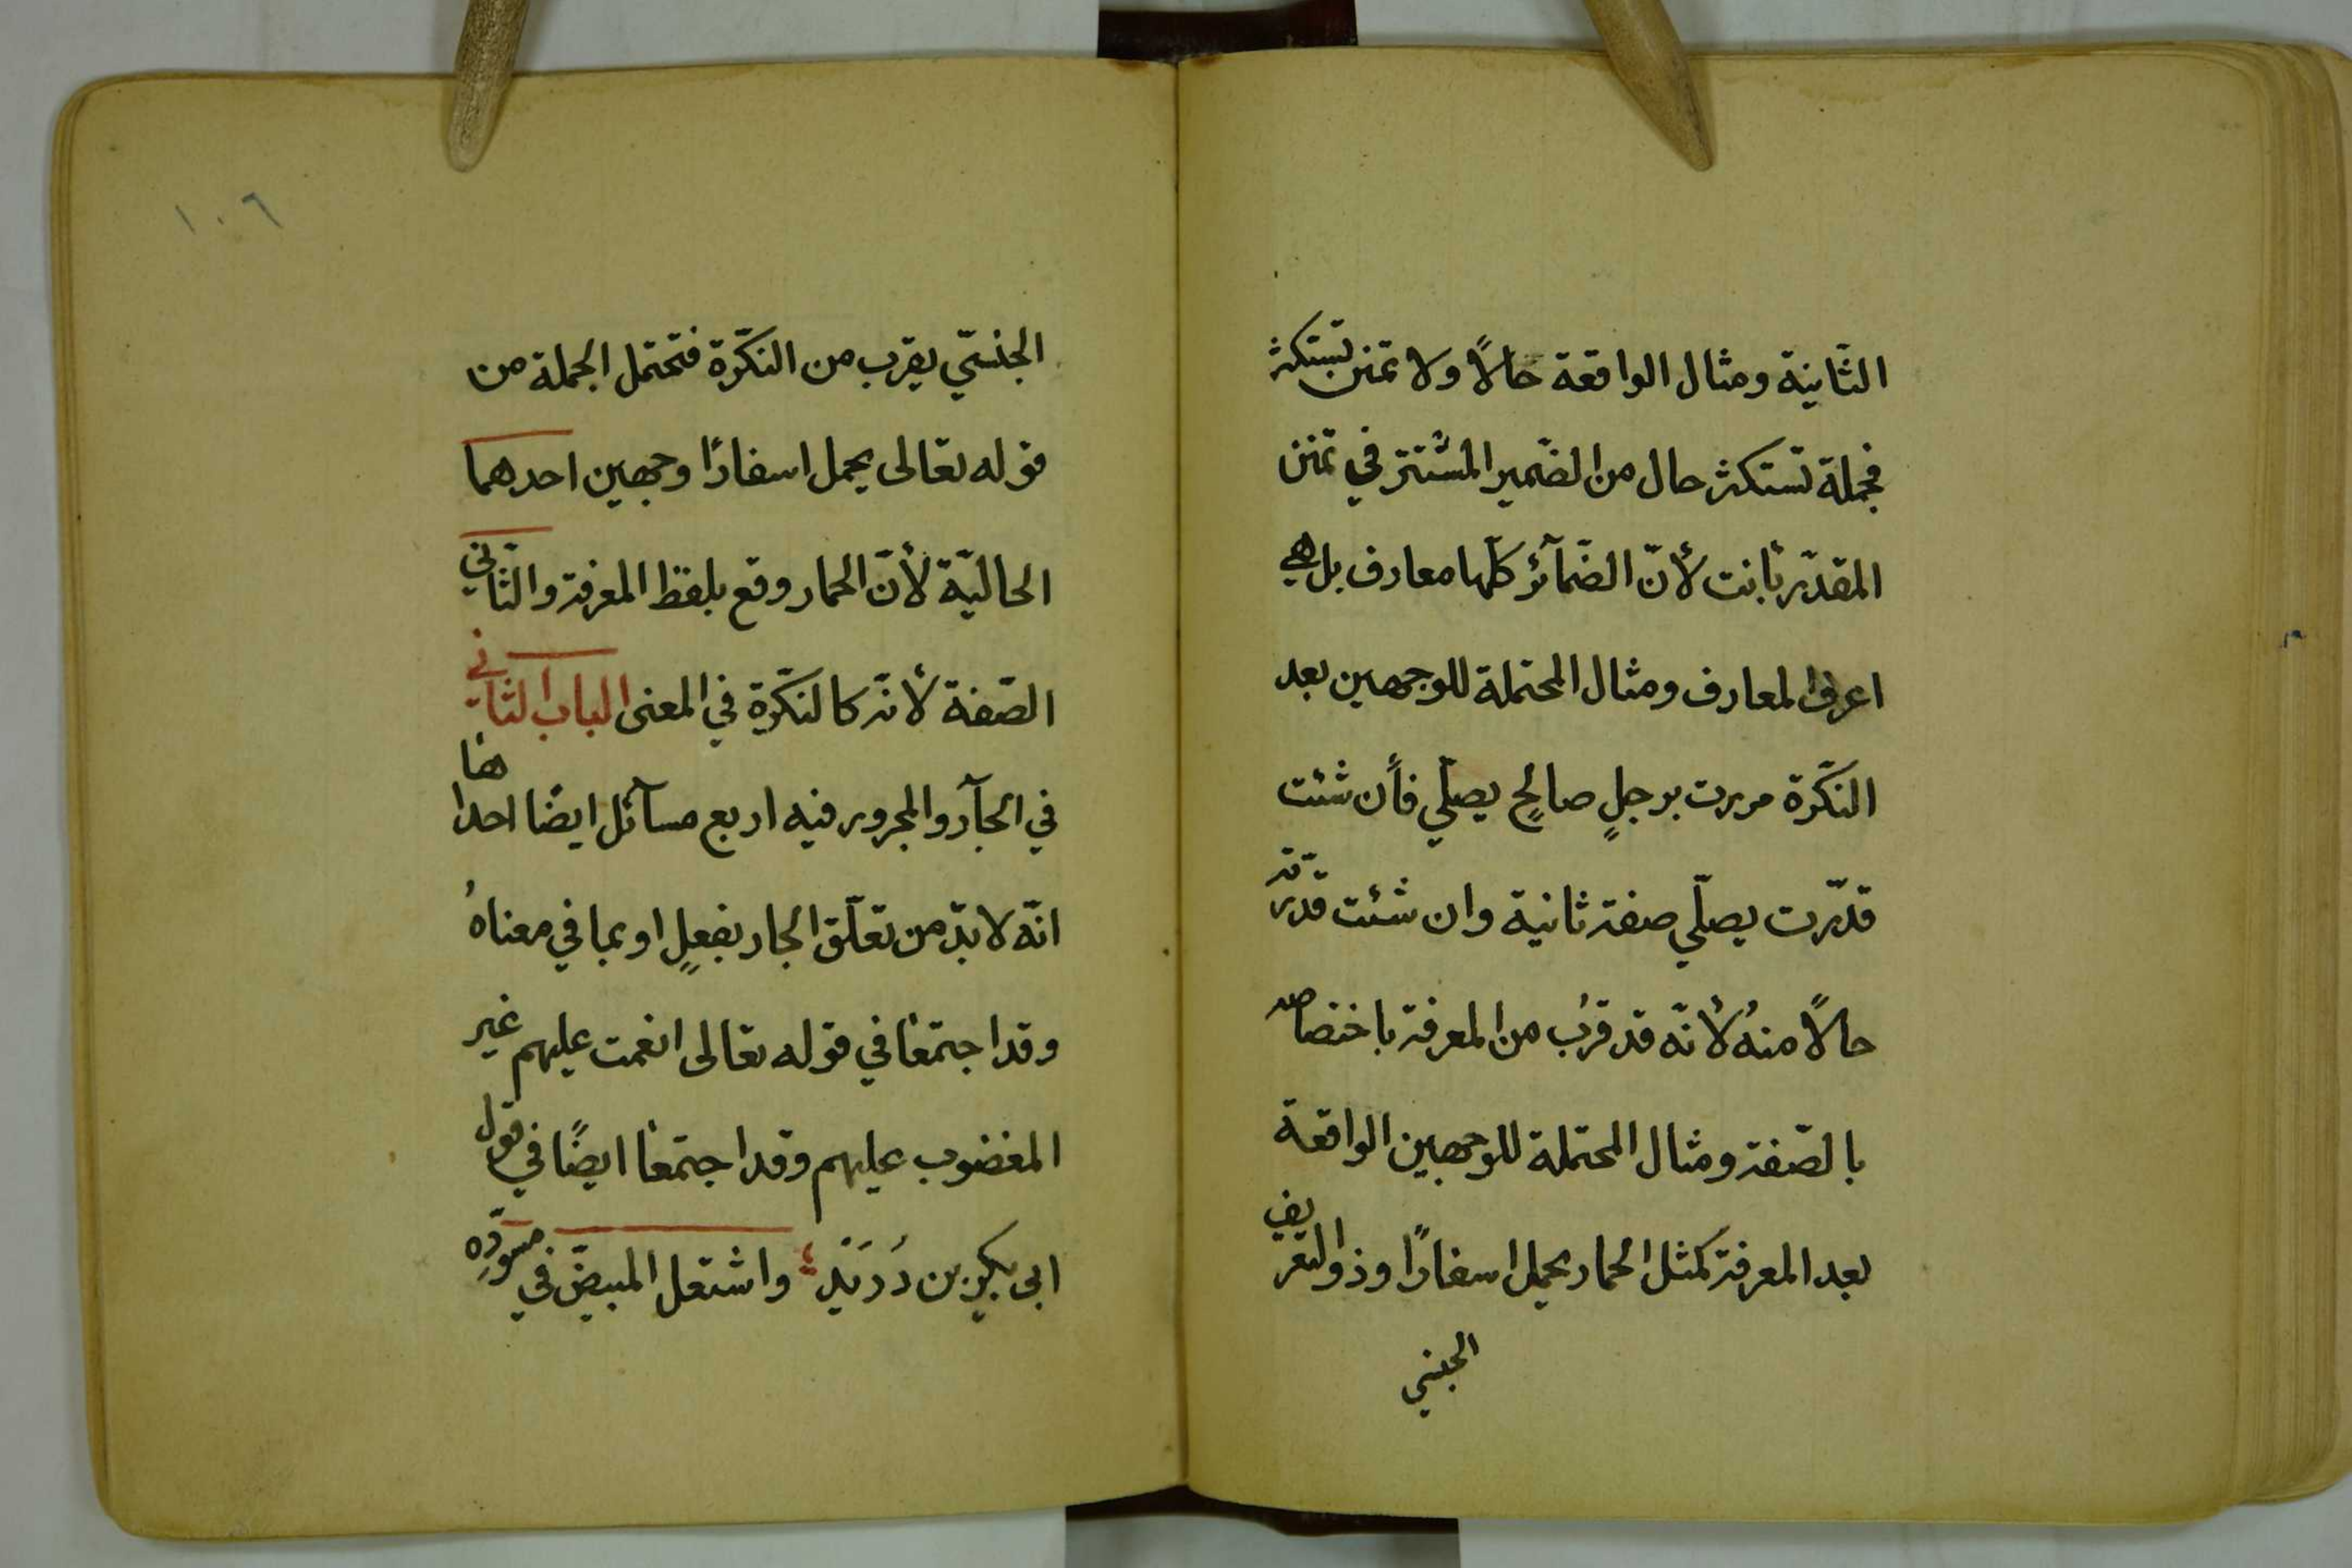 الثّانية ومثال الواقعة حالًا ولا تمنن تستكثر
فجملة تستكثر حال من الضّمير المستتر في تمنن
المقدّر بأنت لأنّ الضّمآئر كلّها معارف بل هي
اعرف المعارف ومثال المحتملة للوجهين بعد
النّكرة مررت برجلٍ صالحٍ يصلّي فأن شئت
قدّرت يصلّي صفة ثانية وان شئت قدّرته
حالًا منهُ لأنّه قد قرُب من المعرفة باختصاصه
بالصّفة ومثال المحتملة للوجهين الواقعة
بعد المعرفة كمثل الحمار يحمل اسفارًا وذو التعريف
الجنسي
١٠٦
الجنسّي يقرب من النكّرة فتحتمل الجملة من
قوله تعالى يحمل اسفارًا وجهين احدهما
الحاليّة لأنّ الحمار وقع بلفظ المعرفة والثّاني
الصّفة لأنّه كالنكّرة في المعنى الباب الثاني
في الجآر والمجرور فيه اربع مسآئل ايضًا احداها
انّه لا بدّ من تعلّق الجار بفعلٍ او بما في معناهُ
وقد اجتمعا في قوله تعالى انعمت عليهم غير
المغضوب عليهم وقد اجتمعا ايضًا في قول
ابى بكرٍ بن دُرَيْدٍ ؛ واشتعل المبيضّ في مسودّهِ